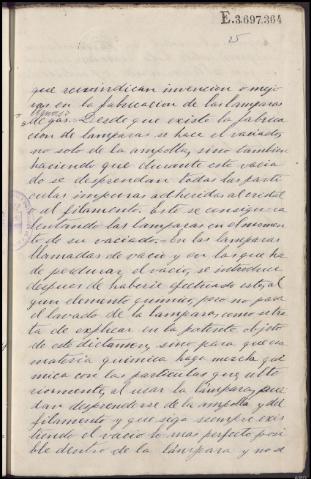 E.3.697.364
25
que reivindican invencion o mejo
ras en la fabricacion de las lamparas
de gas. Desde que existe la fabrica
cion de lamparas se hace el vaciado,
no solo de la ampolla, sino tambien
haciendo que durante este vacia
do se desprendan todas las parti
culas impuras adheridas al cristal
y al filamento. Esto se consigue ca
lentando las lamparas en el momen
to de su vaciado. En las lamparas
llamadas de vacio y en las que ha
de perdurar el vacio, se introduce
despues de haberse efectuado este, al
gun elemento quimico, pero no para
el lavado de la lampara, como se tra
ta de explicar en la patente objeto
de este dictamen, sino para que esa
materia quimica haga mezcla qui
mica con las particulas que ulte
riormente, al usar la lámpara, pue
dan desprenderse de la ampolla y del
filamento y que siga siempre exis
tiendo el vacio lo mas perfecto posi
ble dentro de la lámpara y no se